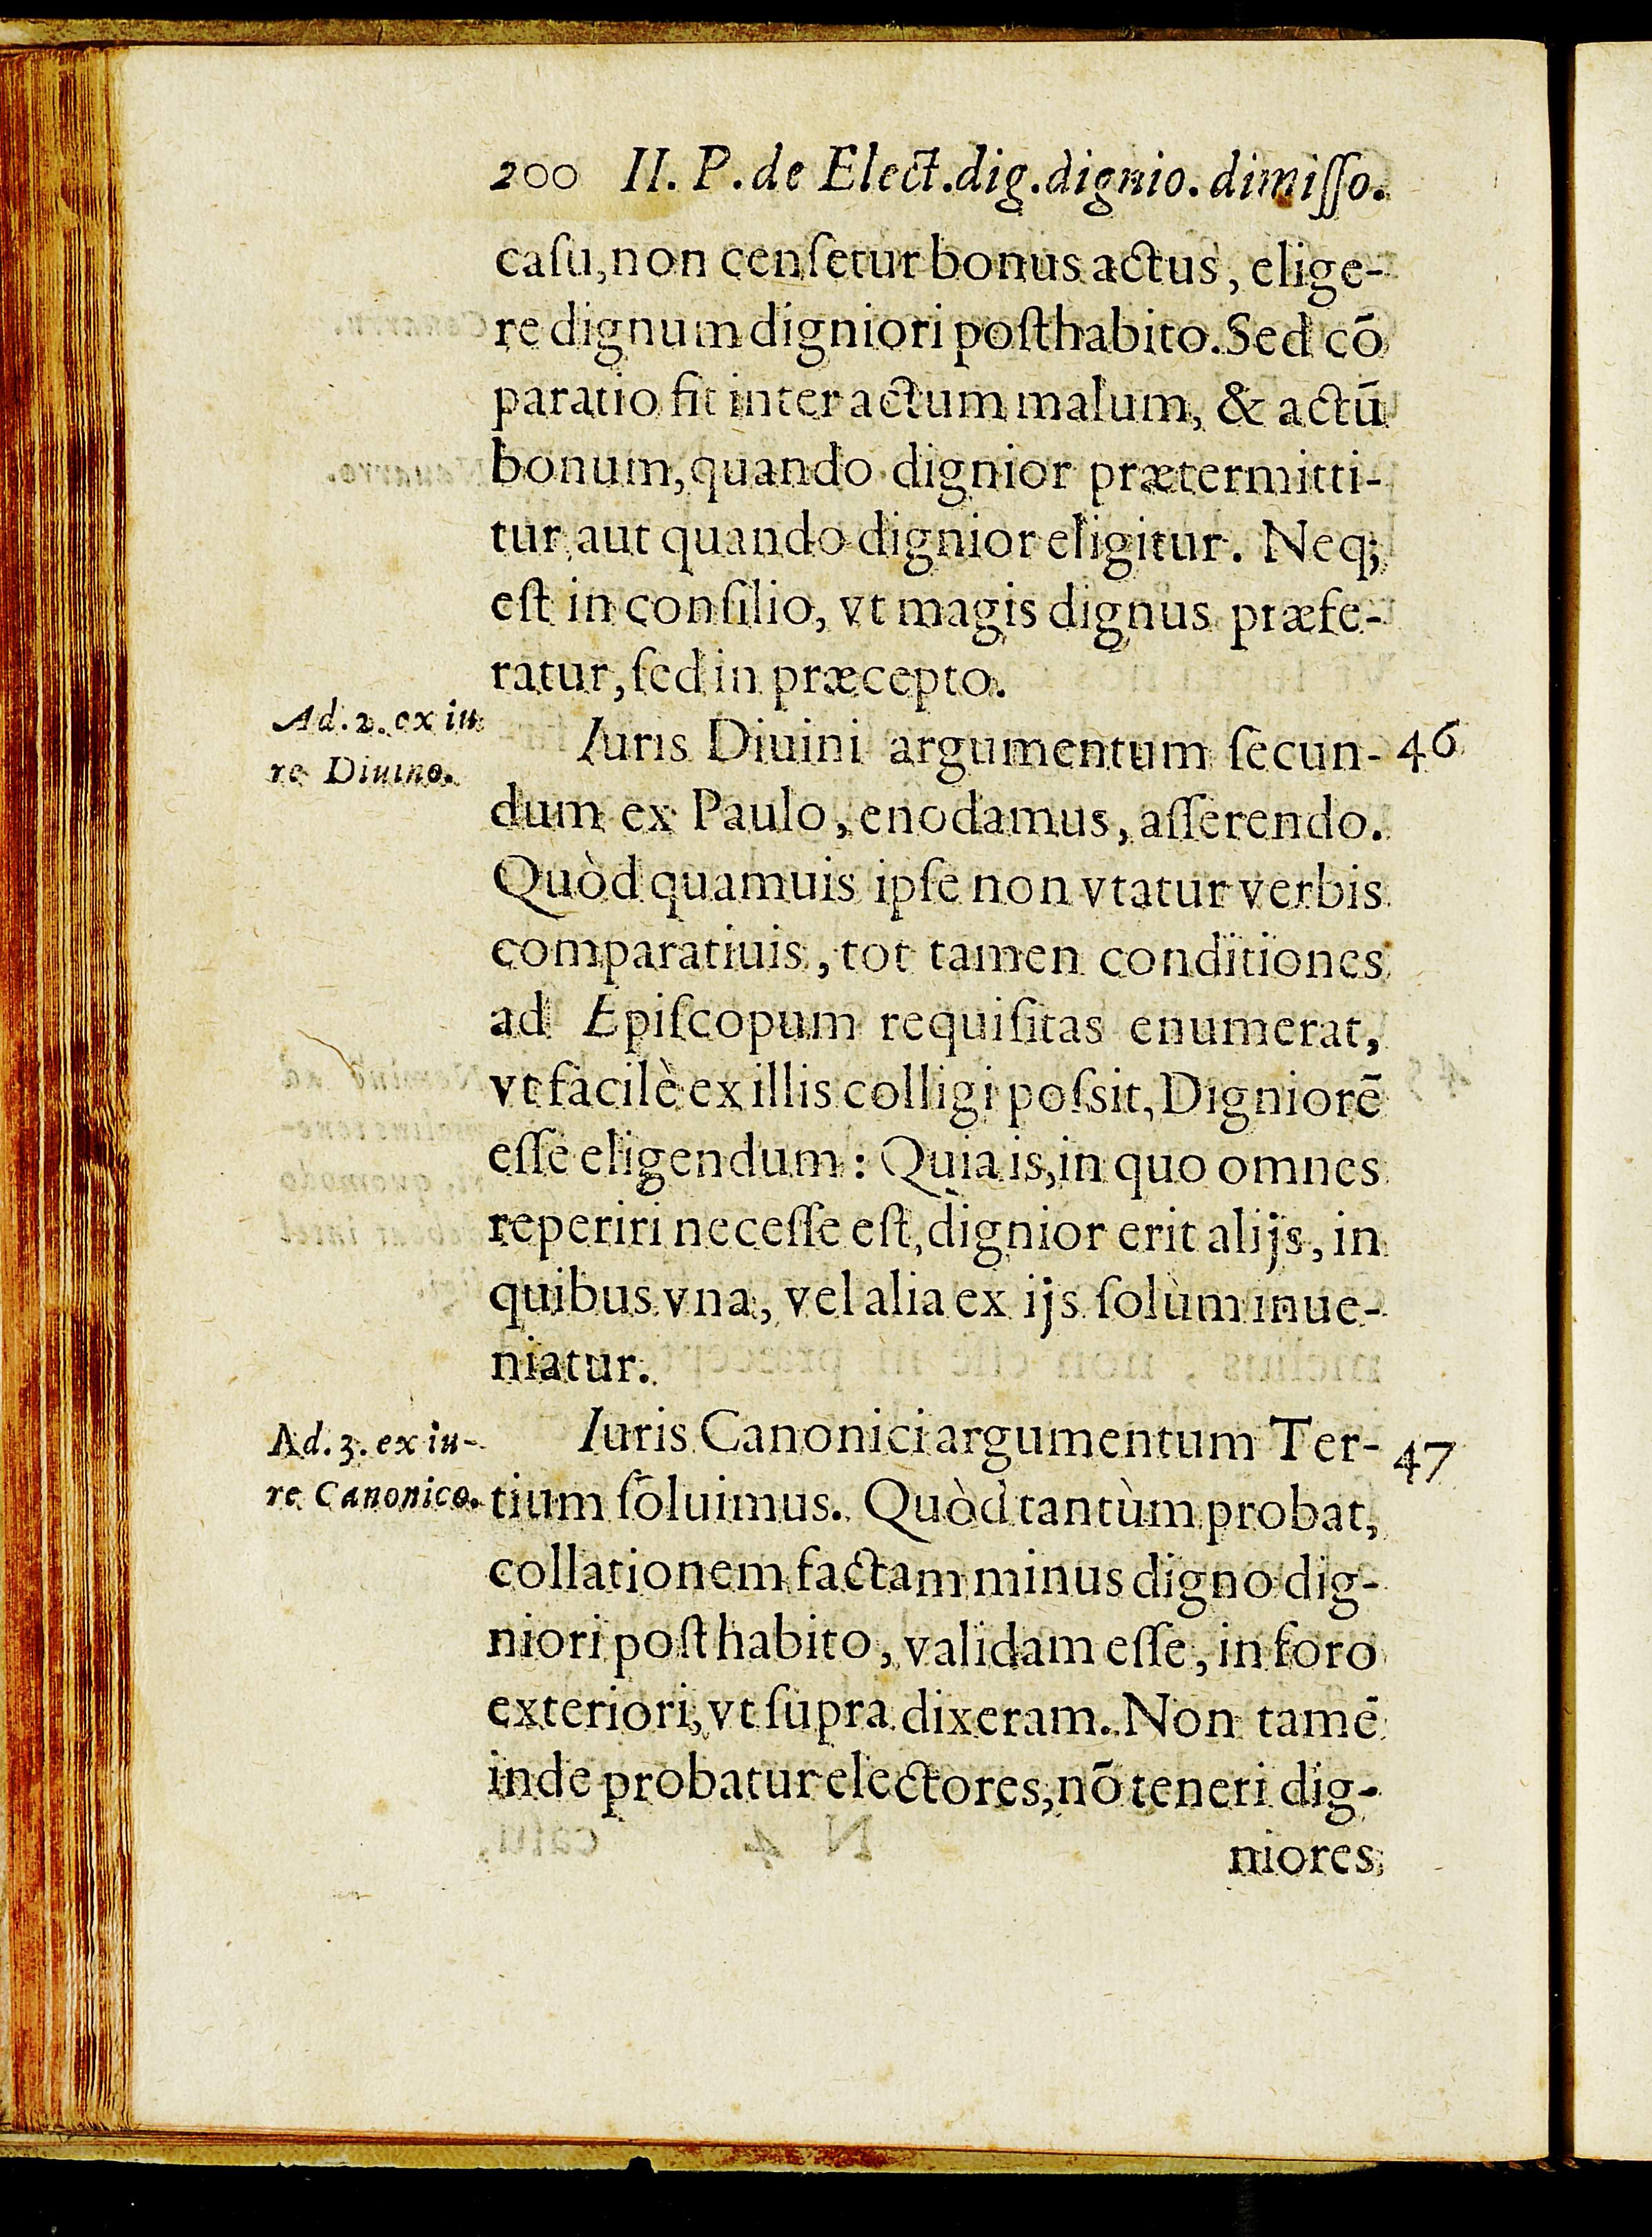 200 II. P. de Elect. dig. dignio. dimiſſo.
caſu, non cenſetur bonus actus, elige-
re dignum digniori poſthabito. Sed cō
paratio fit inter actum malum, & actū
bonum, quando dignior prætermitti-
tur aut quando dignior eligitur. Neq;
eſt in conſilio, vt magis dignus præfe-
ratur, ſed in præcepto.
Ad. 2. ex iu
re Diuino.
Iuris Diuini argumentum ſecun- 46
dum ex Paulo, enodamus, aſſerendo.
Quòd quamuis ipſe non vtatur verbis
comparatiuis, tot tamen conditiones
ad Epiſcopum requiſitas enumerat,
vt facilè ex illis colligi poſsit, Digniorē
eſſe eligendum: Quia is, in quo omnes
reperiri neceſſe eſt, dignior erit alijs, in
quibus vna, vel alia ex ijs ſolùm inue-
niatur.
Ad. 3. ex iu-
re Canonico.
Iuris Canonici argumentum Ter- 47
tium ſoluimus. Quòd tantùm probat,
collationem factam minus digno dig-
niori poſthabito, validam eſſe, in foro
exteriori, vt ſupra dixeram. Non tamē
inde probatur electores, nō teneri dig-
niores